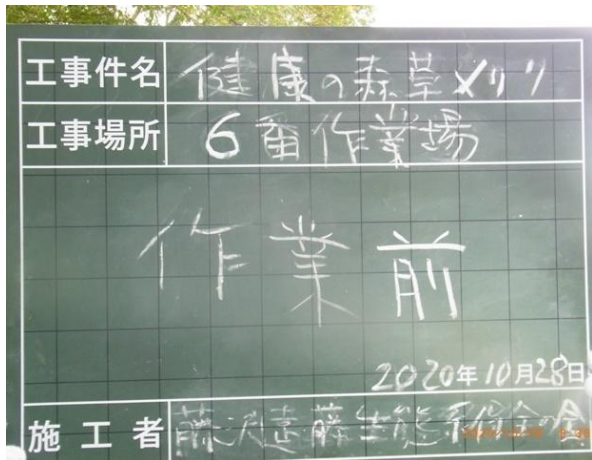 工事件名 健康の森草メリリ
工事場所 6番作業場
作業前
2020年10月28日
施工者 藤沢遠藤生態系保全の会